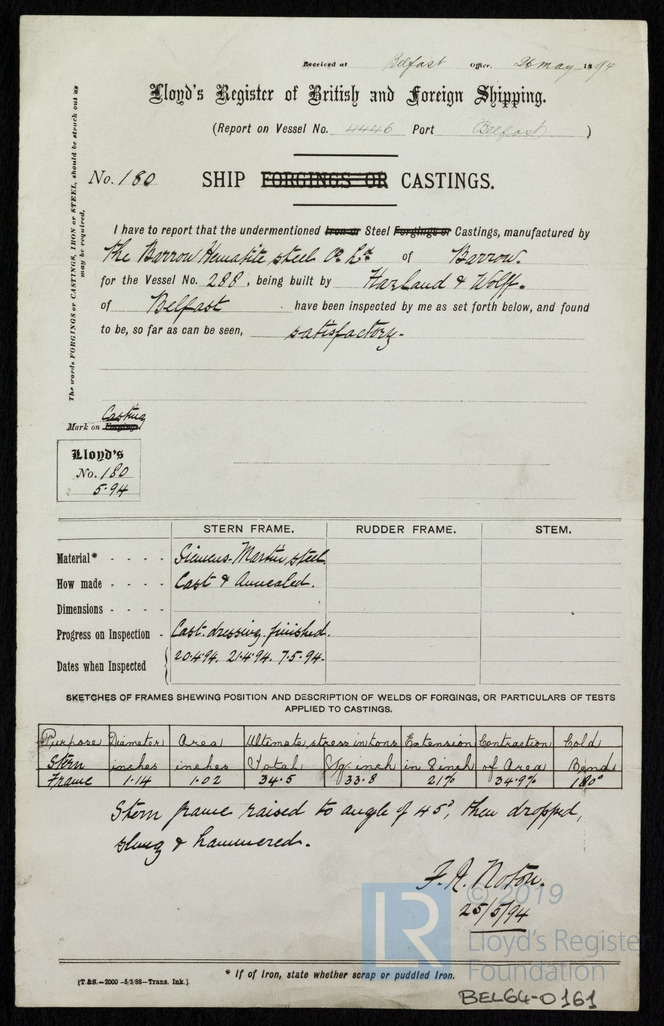 Received at Belfast Office, 26 May 1894
Lloyd's Register of British and Foreign Shipping.
(Report on Vessel No. 4446 Port Belfast )
No. 180 SHIP FORGINGS OR CASTINGS.
The words FORGINGS or CASTINGS, IRON or STEEL, should be struck out as
may be required.
I have to report that the undermentioned Iron or Steel Forgings or Castings, manufactured by
The Barrow Hematite Steel Co. Ld. of Barrow.
for the Vessel No. 288, being built by Harland & Wolff.
of Belfast have been inspected by me as set forth below, and found
to be, so far as can be seen, satisfactory.
Casting
Mark on Forging.
Lloyd's
No. 180
5.94
STERN FRAME. RUDDER FRAME. STEM.
Material* - - - - Siemens-Martin steel
How made - - - - Cast & Annealed.
Dimensions - - - -
Progress on Inspection - Cast. dressing. finished.
Dates when Inspected 20.4.94. 21.4.94. 7.5.94.
SKETCHES OF FRAMES SHEWING POSITION AND DESCRIPTION OF WELDS OF FORGINGS, OR PARTICULARS OF TESTS
APPLIED TO CASTINGS.
Purpose Diameter Area Ultimate stress in tons Extension Contraction Cold
Stern inches inches Total Sq. inch in 8 inch of Area Bend
Frame 1.14 1.02 34.5 33.8 21% 34.9% 180°
Stern frame raised to angle of 45°, then dropped,
slung & hammered.
F. A. Noton.
25/5/94
© 2019
LR
Lloyd's Register
Foundation
* If of Iron, state whether scrap or puddled Iron.
[T.&S.—2000 -5/3/88—Trans. Ink.]
BEL64-0161